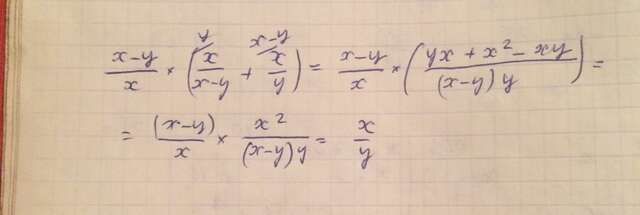 (x-y)/x × (x/(x-y) + x/y) = (x-y)/x × ((yx + x² - xy)/((x-y)y)) =
= (x-y)/x × x²/((x-y)y) = x/y